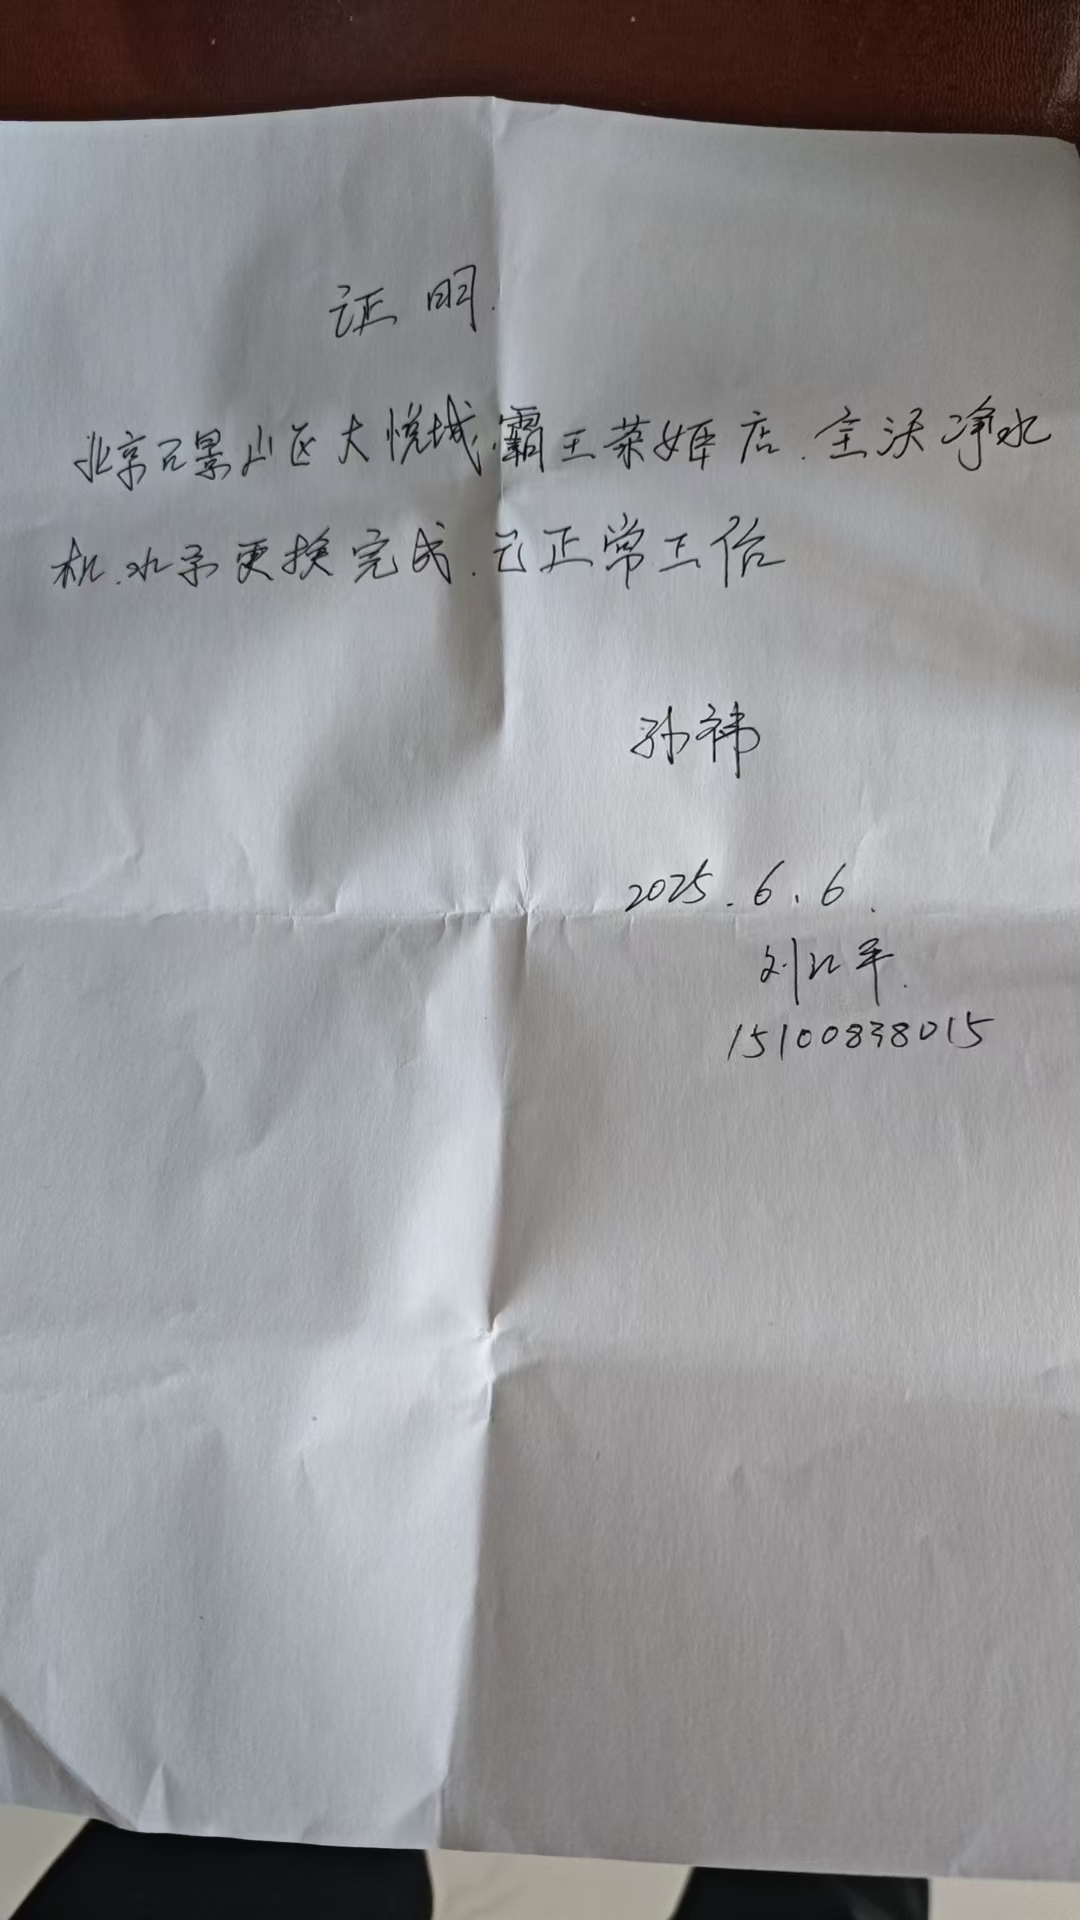 证明.
北京石景山区大悦城.霸王茶姬店.全沃净水
机.水泵更换完成.已正常工作
孙祎
2025.6.6.
刘江军.
15100838015